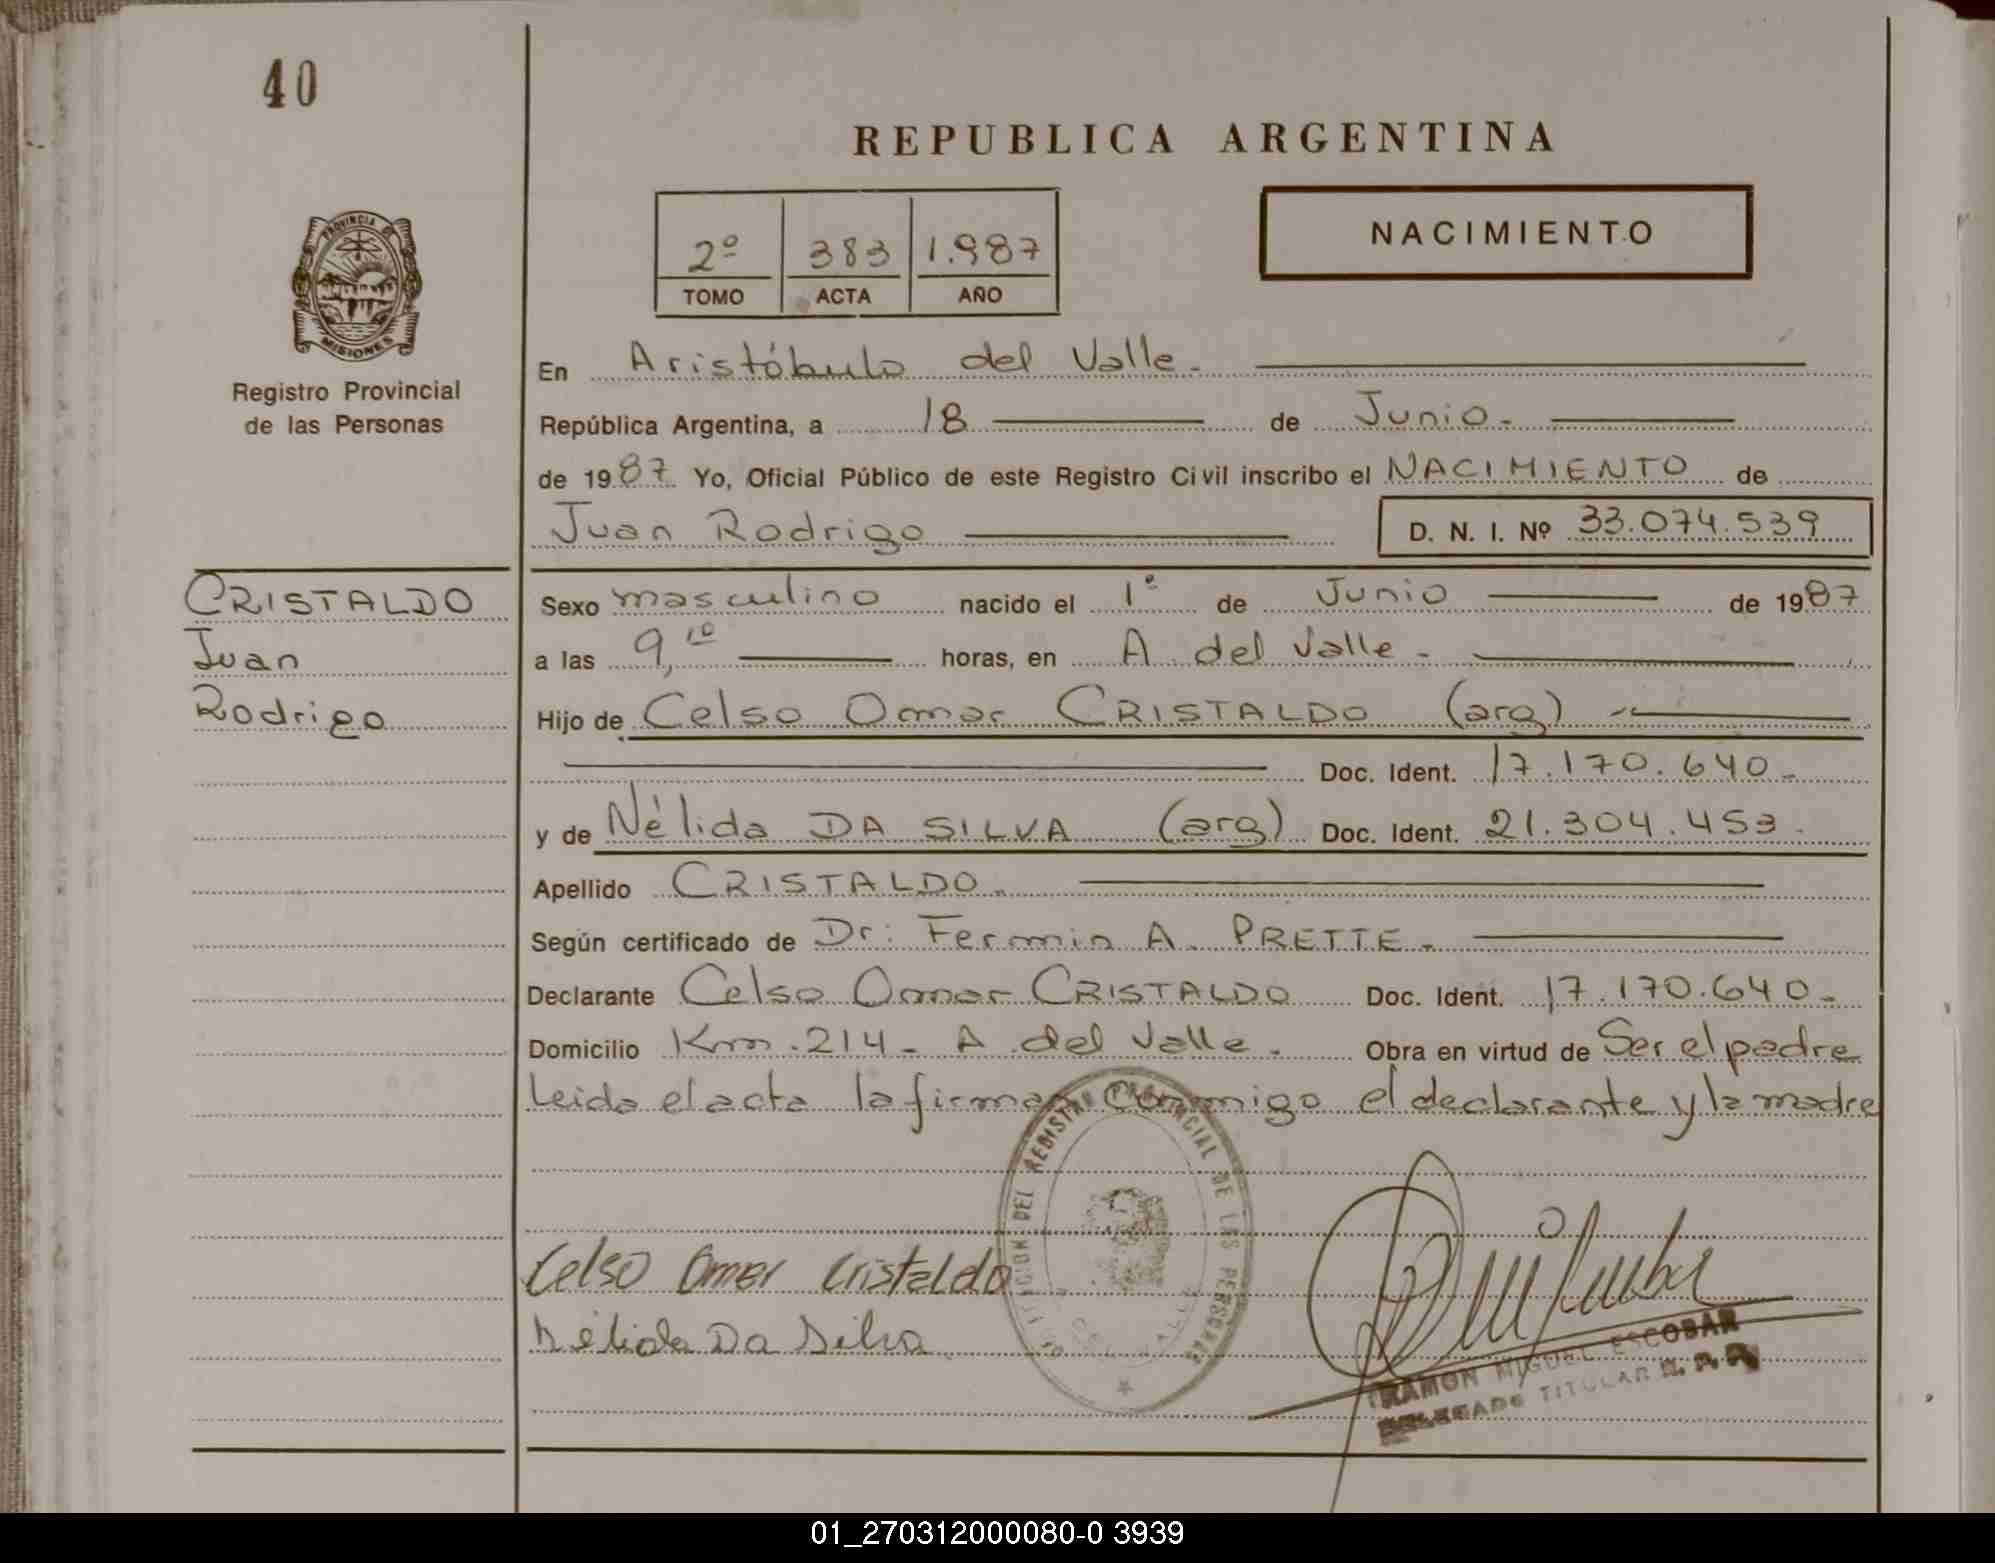 40
REPUBLICA ARGENTINA
2º 383 1.987
TOMO ACTA AÑO
NACIMIENTO
PROVINCIA
MISIONES
Registro Provincial
de las Personas
En Aristóbulo del Valle.
República Argentina, a 18 de Junio.
de 1987. Yo, Oficial Público de este Registro Civil inscribo el NACIMIENTO de
Juan Rodrigo D. N. I. Nº 33.074.539
CRISTALDO
Juan
Rodrigo
Sexo masculino nacido el 1º de Junio de 1987
a las 9,10 horas, en A. del Valle.
Hijo de Celso Omar CRISTALDO (arg)
Doc. Ident. 17.170.640.
y de Nélida DA SILVA (arg) Doc. Ident. 21.304.453.
Apellido CRISTALDO.
Según certificado de Dr: Fermin A. PRETTE.
Declarante Celso Omar CRISTALDO Doc. Ident. 17.170.640.
Domicilio Km. 214. A del Valle. Obra en virtud de Ser el padre
Leida el acta la firman conmigo el declarante y la madre
DEL REGISTRO PROVINCIAL DE LAS PERSONAS
Celso Omar Cristaldo
Nélida Da Silva
RAMON MIGUEL ESCOBAR
DELEGADO TITULAR R. P. P.
01_270312000080-0 3939